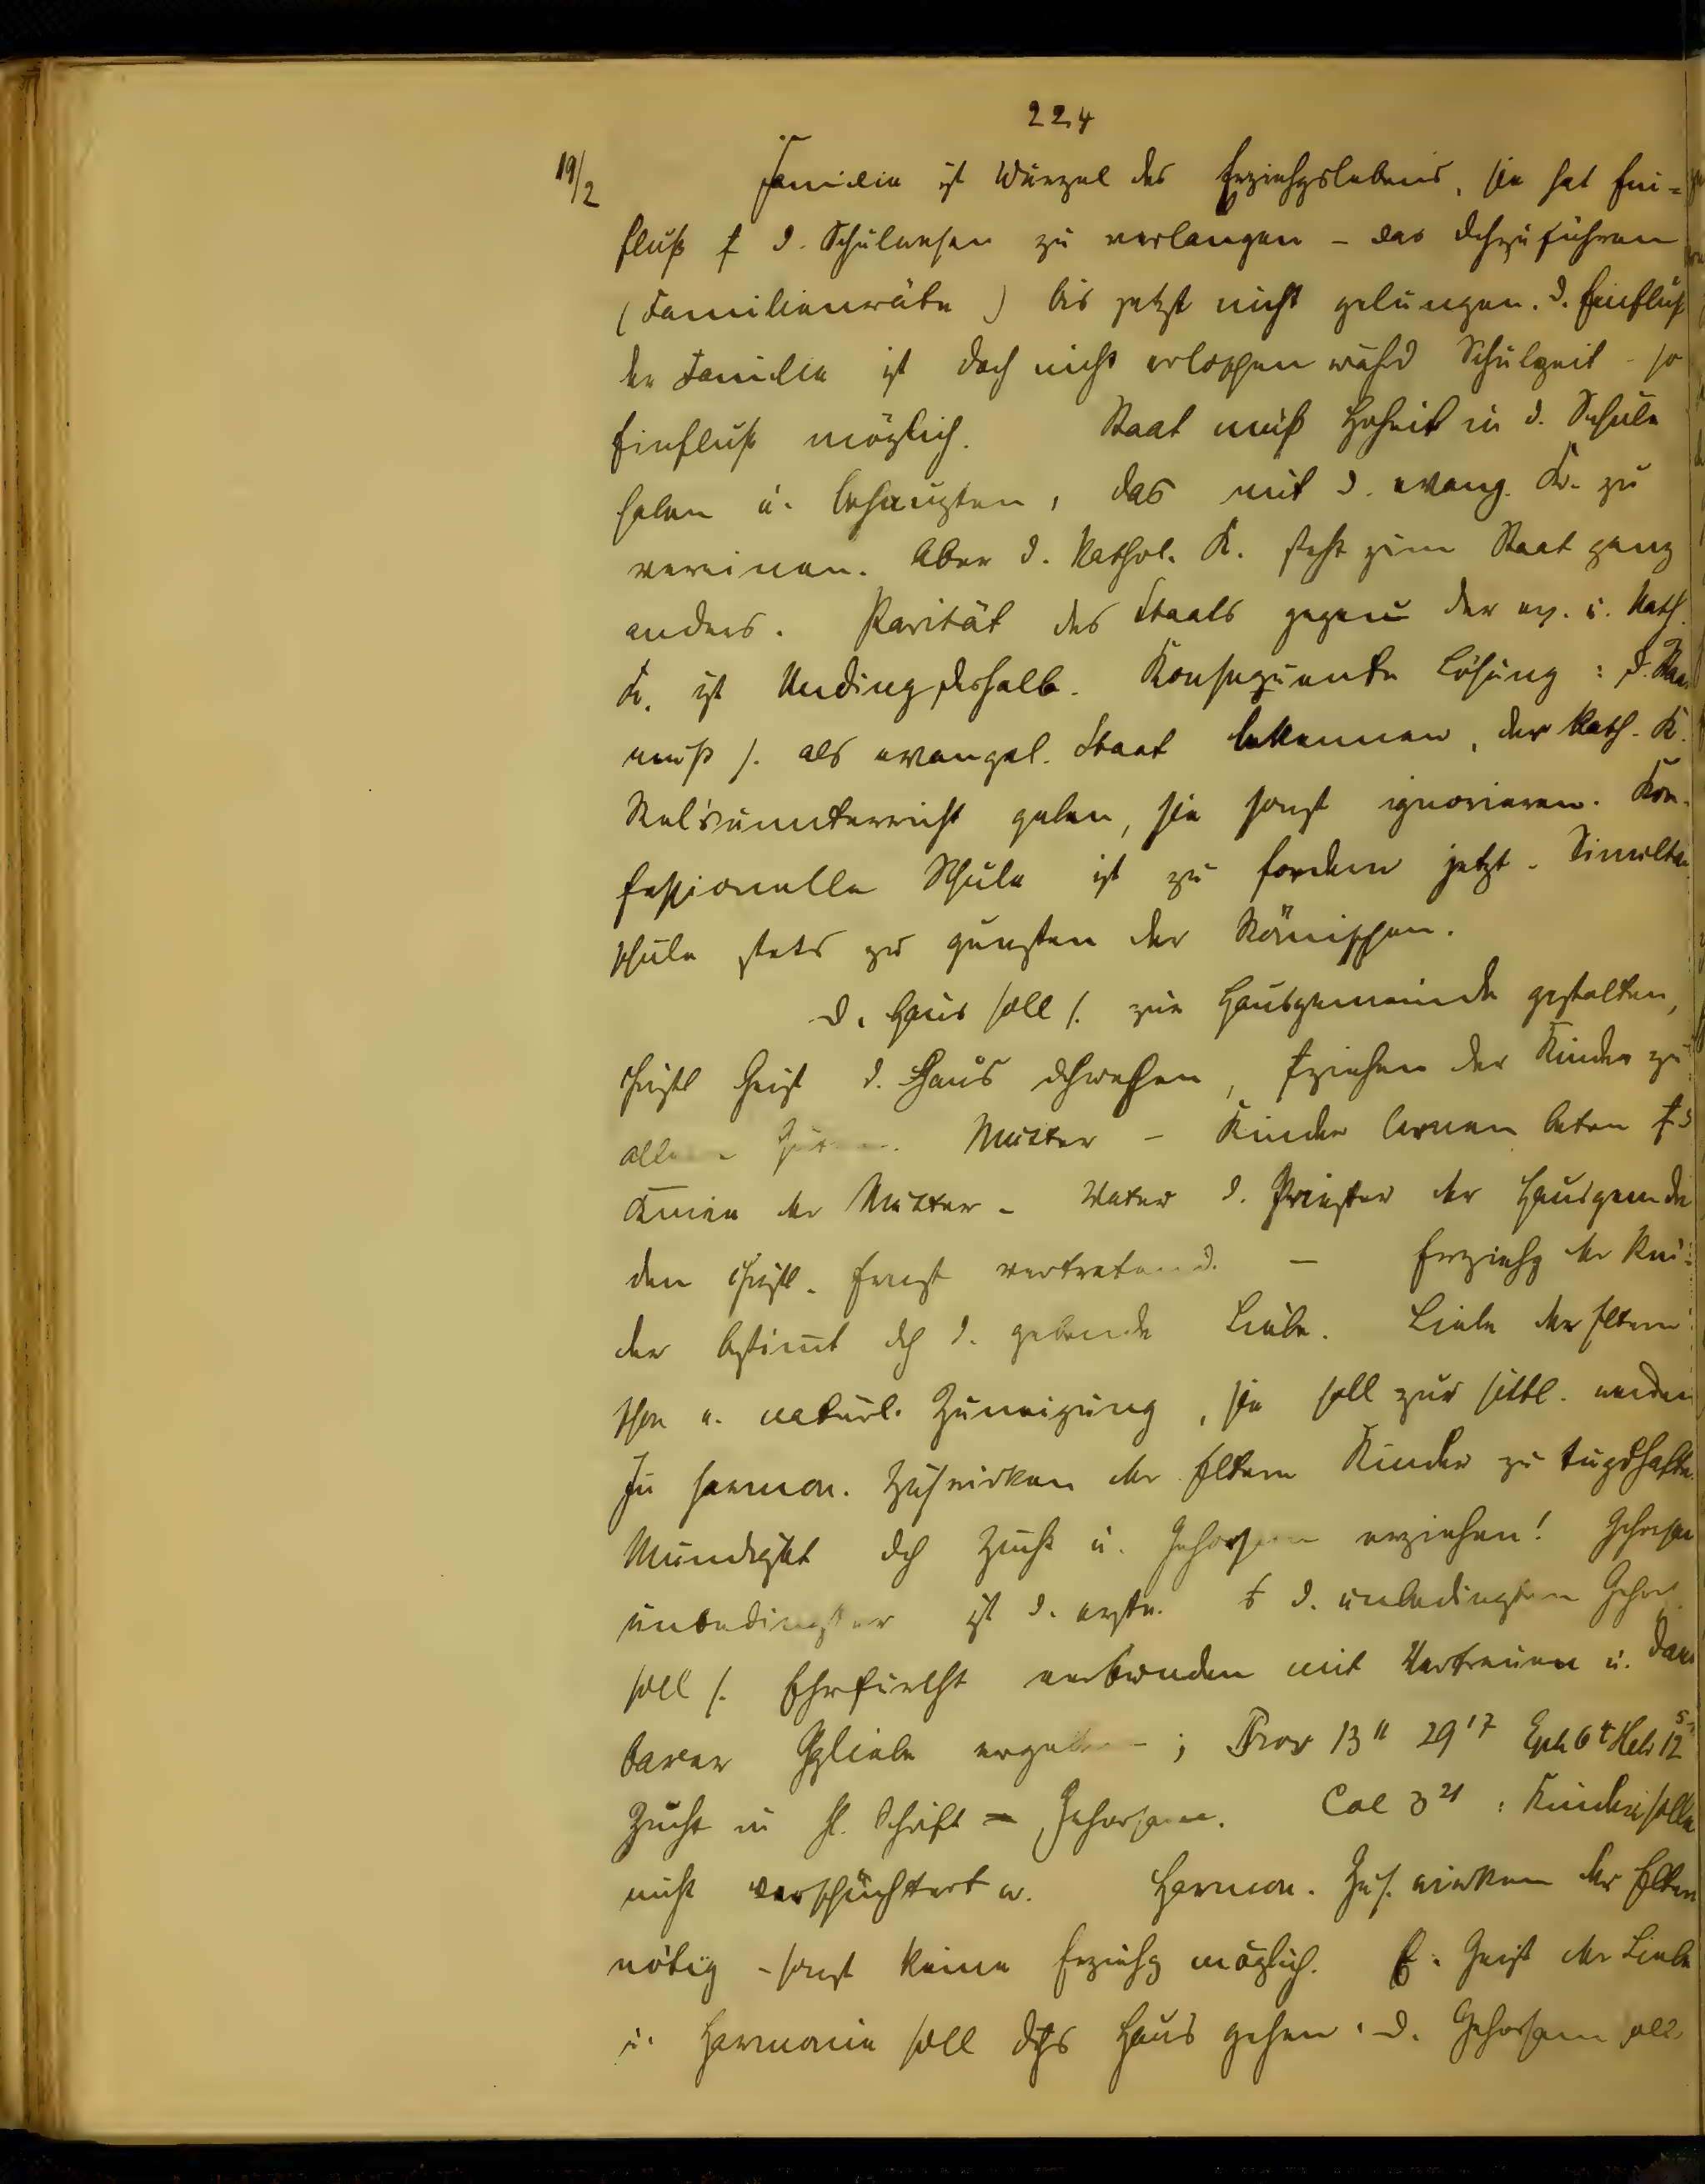 224
19/2 Familie ist Wurzel des Erziehgslebens, sie hat Ein-
fluß f d. Schulwesen zu verlangen - das dchzuführen
(Familienräte) bis jetzt nicht gelungen. D. Einfluß
der Familie ist doch nicht erloschen währd Schulzeit - so
Einfluß möglich. Staat muß Hoheit in d. Schule
haben u. behaupten, das mit d. evang. K. zu
vereinen. Aber d. kathol. K. steht zum Staat ganz
anders. Parität des Staats gegenü der ev. u. kath.
K. ist Unding deshalb. Konsequente Lösung: d. Staa
muß s. als evangel. Staat bekennen, der kath. K.
Rel'sunterricht geben, sie sonst ignorieren. Kon-
fessionelle Schule ist zu fordern jetzt. Simultan
schule stets zu gunsten der Römischen.
D. Haus soll s. zur Hausgemeinde gestalten,
christl Geist d. Haus dchwehen, Erziehen der Kinder zu
allem Guten. Mutter - Kinder lernen beten f d
Knien der Mutter - Vater d. Priester der Hausgemde
den christl. Ernst vertretend. - Erziehg der Kin-
der bestimt dch d. gebende Liebe. Liebe der Eltern
schon u. natürl. Zuneigung, sie soll zur sittl. werden
In harmon. Zus'wirken der Eltern Kinder zu tugdhafter
Mündigkt dch Zucht u. Gehorsam erziehen! Gehorsam
unbedingter ist d. erste. d. unbedingten Gehors.
soll s. Ehrfurcht verbunden mit Vertrauen u. Dank
barer Ggliebe ergeben; Prov 13 11 29 17 Eph 6 4 Heb 12 5
Zucht in hl. Schrift = Gehorsam. Col 3 21: Kinder solle
nicht verschüchtert w. Harmon. Zus. wirken der Eltern
nötig - sonst keine Erziehg möglich. E. Geist der Liebe
u. Harmonie soll dchs Haus gehen. D. Gehorsam soll